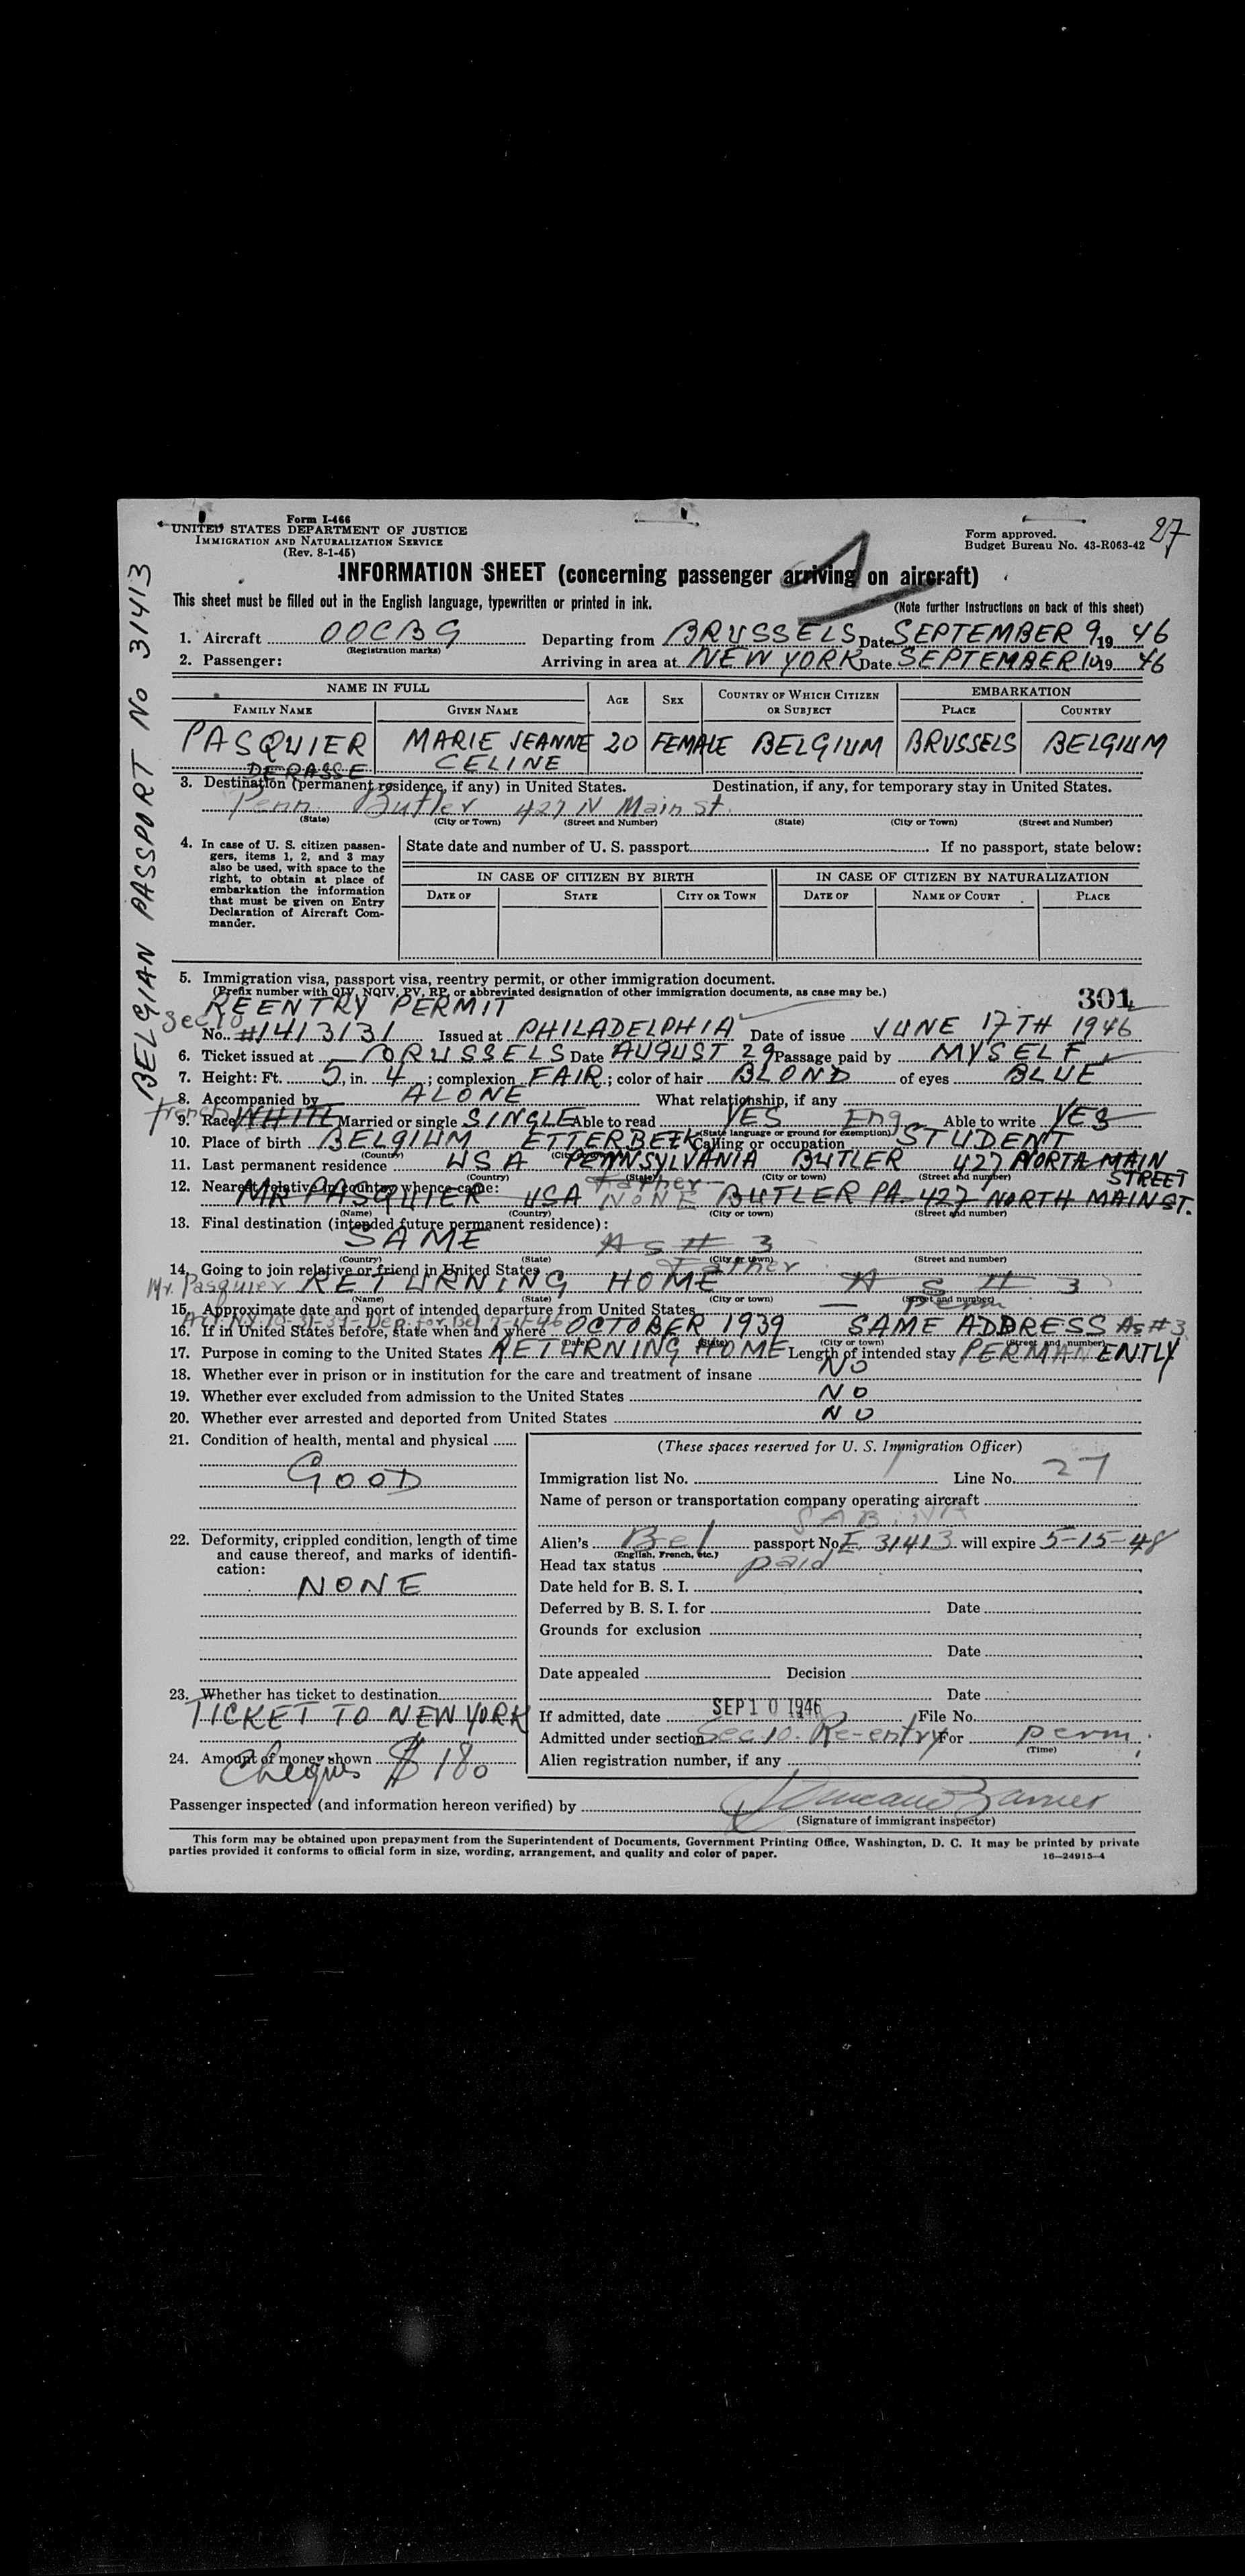 27
Form I-466
UNITED STATES DEPARTMENT OF JUSTICE
IMMIGRATION AND NATURALIZATION SERVICE
(Rev. 8-1-45)
Form approved.
Budget Bureau No. 43-R063-42
INFORMATION SHEET (concerning passenger arriving on aircraft)
This sheet must be filled out in the English language, typewritten or printed in ink.
(Note further instructions on back of this sheet)
BELGIAN PASSPORT No 31413
1. Aircraft OOCBG Departing from BRUSSELS Date SEPTEMBER 9, 19 46
(Registration marks)
2. Passenger: Arriving in area at NEW YORK Date SEPTEMBER 10 19 46
NAME IN FULL AGE SEX COUNTRY OF WHICH CITIZEN OR SUBJECT EMBARKATION
FAMILY NAME GIVEN NAME PLACE COUNTRY
PASQUIER MARIE JEANNE 20 FEMALE BELGIUM BRUSSELS BELGIUM
DERASSE CELINE
3. Destination (permanent residence, if any) in United States. Destination, if any, for temporary stay in United States.
Penn. Butler 427 N Main st.
(State) (City or Town) (Street and Number) (State) (City or Town) (Street and Number)
4. In case of U. S. citizen passengers, items 1, 2, and 3 may also be used, with space to the right, to obtain at place of embarkation the information that must be given on Entry Declaration of Aircraft Commander.
State date and number of U. S. passport If no passport, state below:
IN CASE OF CITIZEN BY BIRTH IN CASE OF CITIZEN BY NATURALIZATION
DATE OF STATE CITY OR TOWN DATE OF NAME OF COURT PLACE
5. Immigration visa, passport visa, reentry permit, or other immigration document.
(Prefix number with QIV, NQIV, PV, RP, or abbreviated designation of other immigration documents, as case may be.)
REENTRY PERMIT 301
Sec 10
No. #1413131 Issued at PHILADELPHIA Date of issue JUNE 17TH 1946
6. Ticket issued at BRUSSELS Date AUGUST 29 Passage paid by MYSELF
7. Height: Ft. 5, in. 4; complexion FAIR; color of hair BLOND of eyes BLUE
8. Accompanied by ALONE What relationship, if any
French
9. Race WHITE Married or single SINGLE Able to read YES Eng Able to write YES
(State language or ground for exemption)
10. Place of birth BELGIUM ETTERBEEK Calling or occupation STUDENT
(Country) (City
11. Last permanent residence USA PENNSYLVANIA BUTLER 427 NORTH MAIN STREET
(Country) (State) (City or town) (Street and number)
12. Nearest relative in country whence came: Father
MR PASQUIER USA NONE BUTLER PA. 427 NORTH MAIN ST.
(Name) (Country) (City or town) (Street and number)
13. Final destination (intended future permanent residence):
SAME As # 3
(Country) (State) (City or town) (Street and number)
14. Going to join relative or friend in United States Father
Mr. Pasquier RETURNING HOME As # 3
(Name) (State) (City or town) (Street and number)
15. Approximate date and port of intended departure from United States — perm
16. If in United States before, state when and where OCTOBER 1939 SAME ADDRESS As #3
(Date) (State) (City or town) (Street and number)
17. Purpose in coming to the United States RETURNING HOME Length of intended stay PERMANENTLY
18. Whether ever in prison or in institution for the care and treatment of insane NO
19. Whether ever excluded from admission to the United States NO
20. Whether ever arrested and deported from United States NO
21. Condition of health, mental and physical
GOOD
22. Deformity, crippled condition, length of time and cause thereof, and marks of identification:
NONE
23. Whether has ticket to destination
TICKET TO NEW YORK
24. Amount of money shown Cheques $ 180
(These spaces reserved for U. S. Immigration Officer)
Immigration list No. 1 Line No. 27
Name of person or transportation company operating aircraft
SABENA
Alien's Bel passport No. E 31413 will expire 5-15-48
(English, French, etc.)
Head tax status paid
Date held for B. S. I.
Deferred by B. S. I. for Date
Grounds for exclusion
Date
Date appealed Decision
Date
If admitted, date SEP 10 1946 File No.
Admitted under section Sec 10. Re-entry For perm.
(Time)
Alien registration number, if any
Passenger inspected (and information hereon verified) by
(Signature of immigrant inspector)
This form may be obtained upon prepayment from the Superintendent of Documents, Government Printing Office, Washington, D. C. It may be printed by private
parties provided it conforms to official form in size, wording, arrangement, and quality and color of paper. 16—24915-4